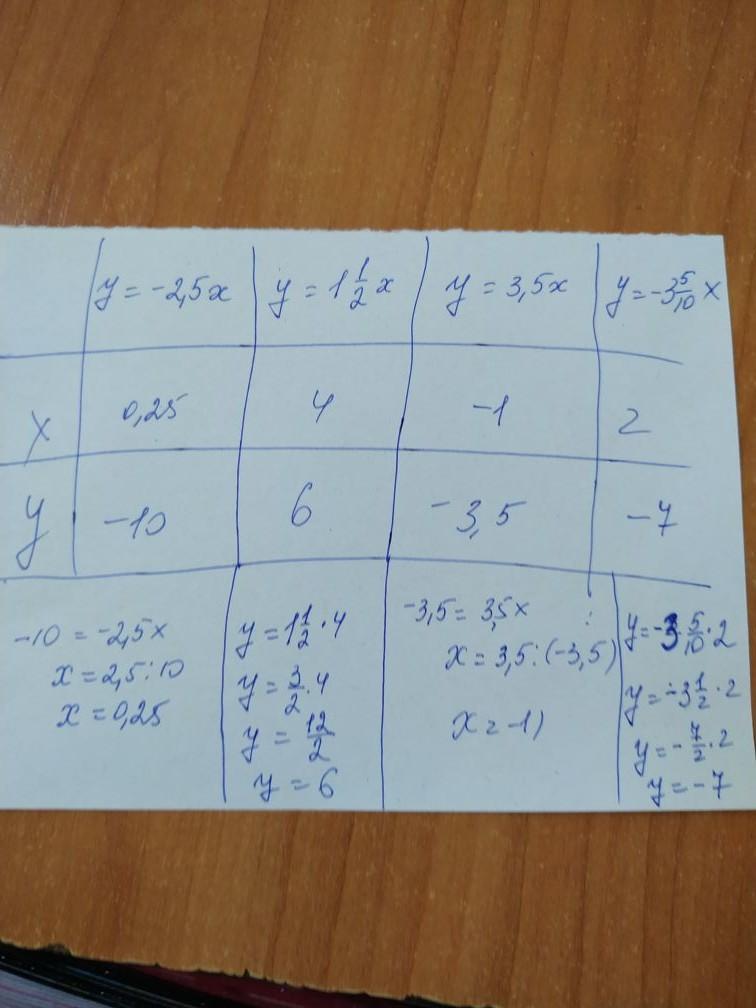 y = -2,5x y = 1 1/2 x y = 3,5x y = -3 5/10 x
x 0,25 4 -1 2
y -10 6 -3,5 -7
-10 = -2,5x
x = 2,5:10
x = 0,25
y = 1 1/2 · 4
y = 3/2 · 4
y = 12/2
y = 6
-3,5 = 3,5x
x = 3,5:(-3,5)
x = -1)
y = -3 5/10 · 2
y = -3 1/2 · 2
y = -7/2 · 2
y = -7